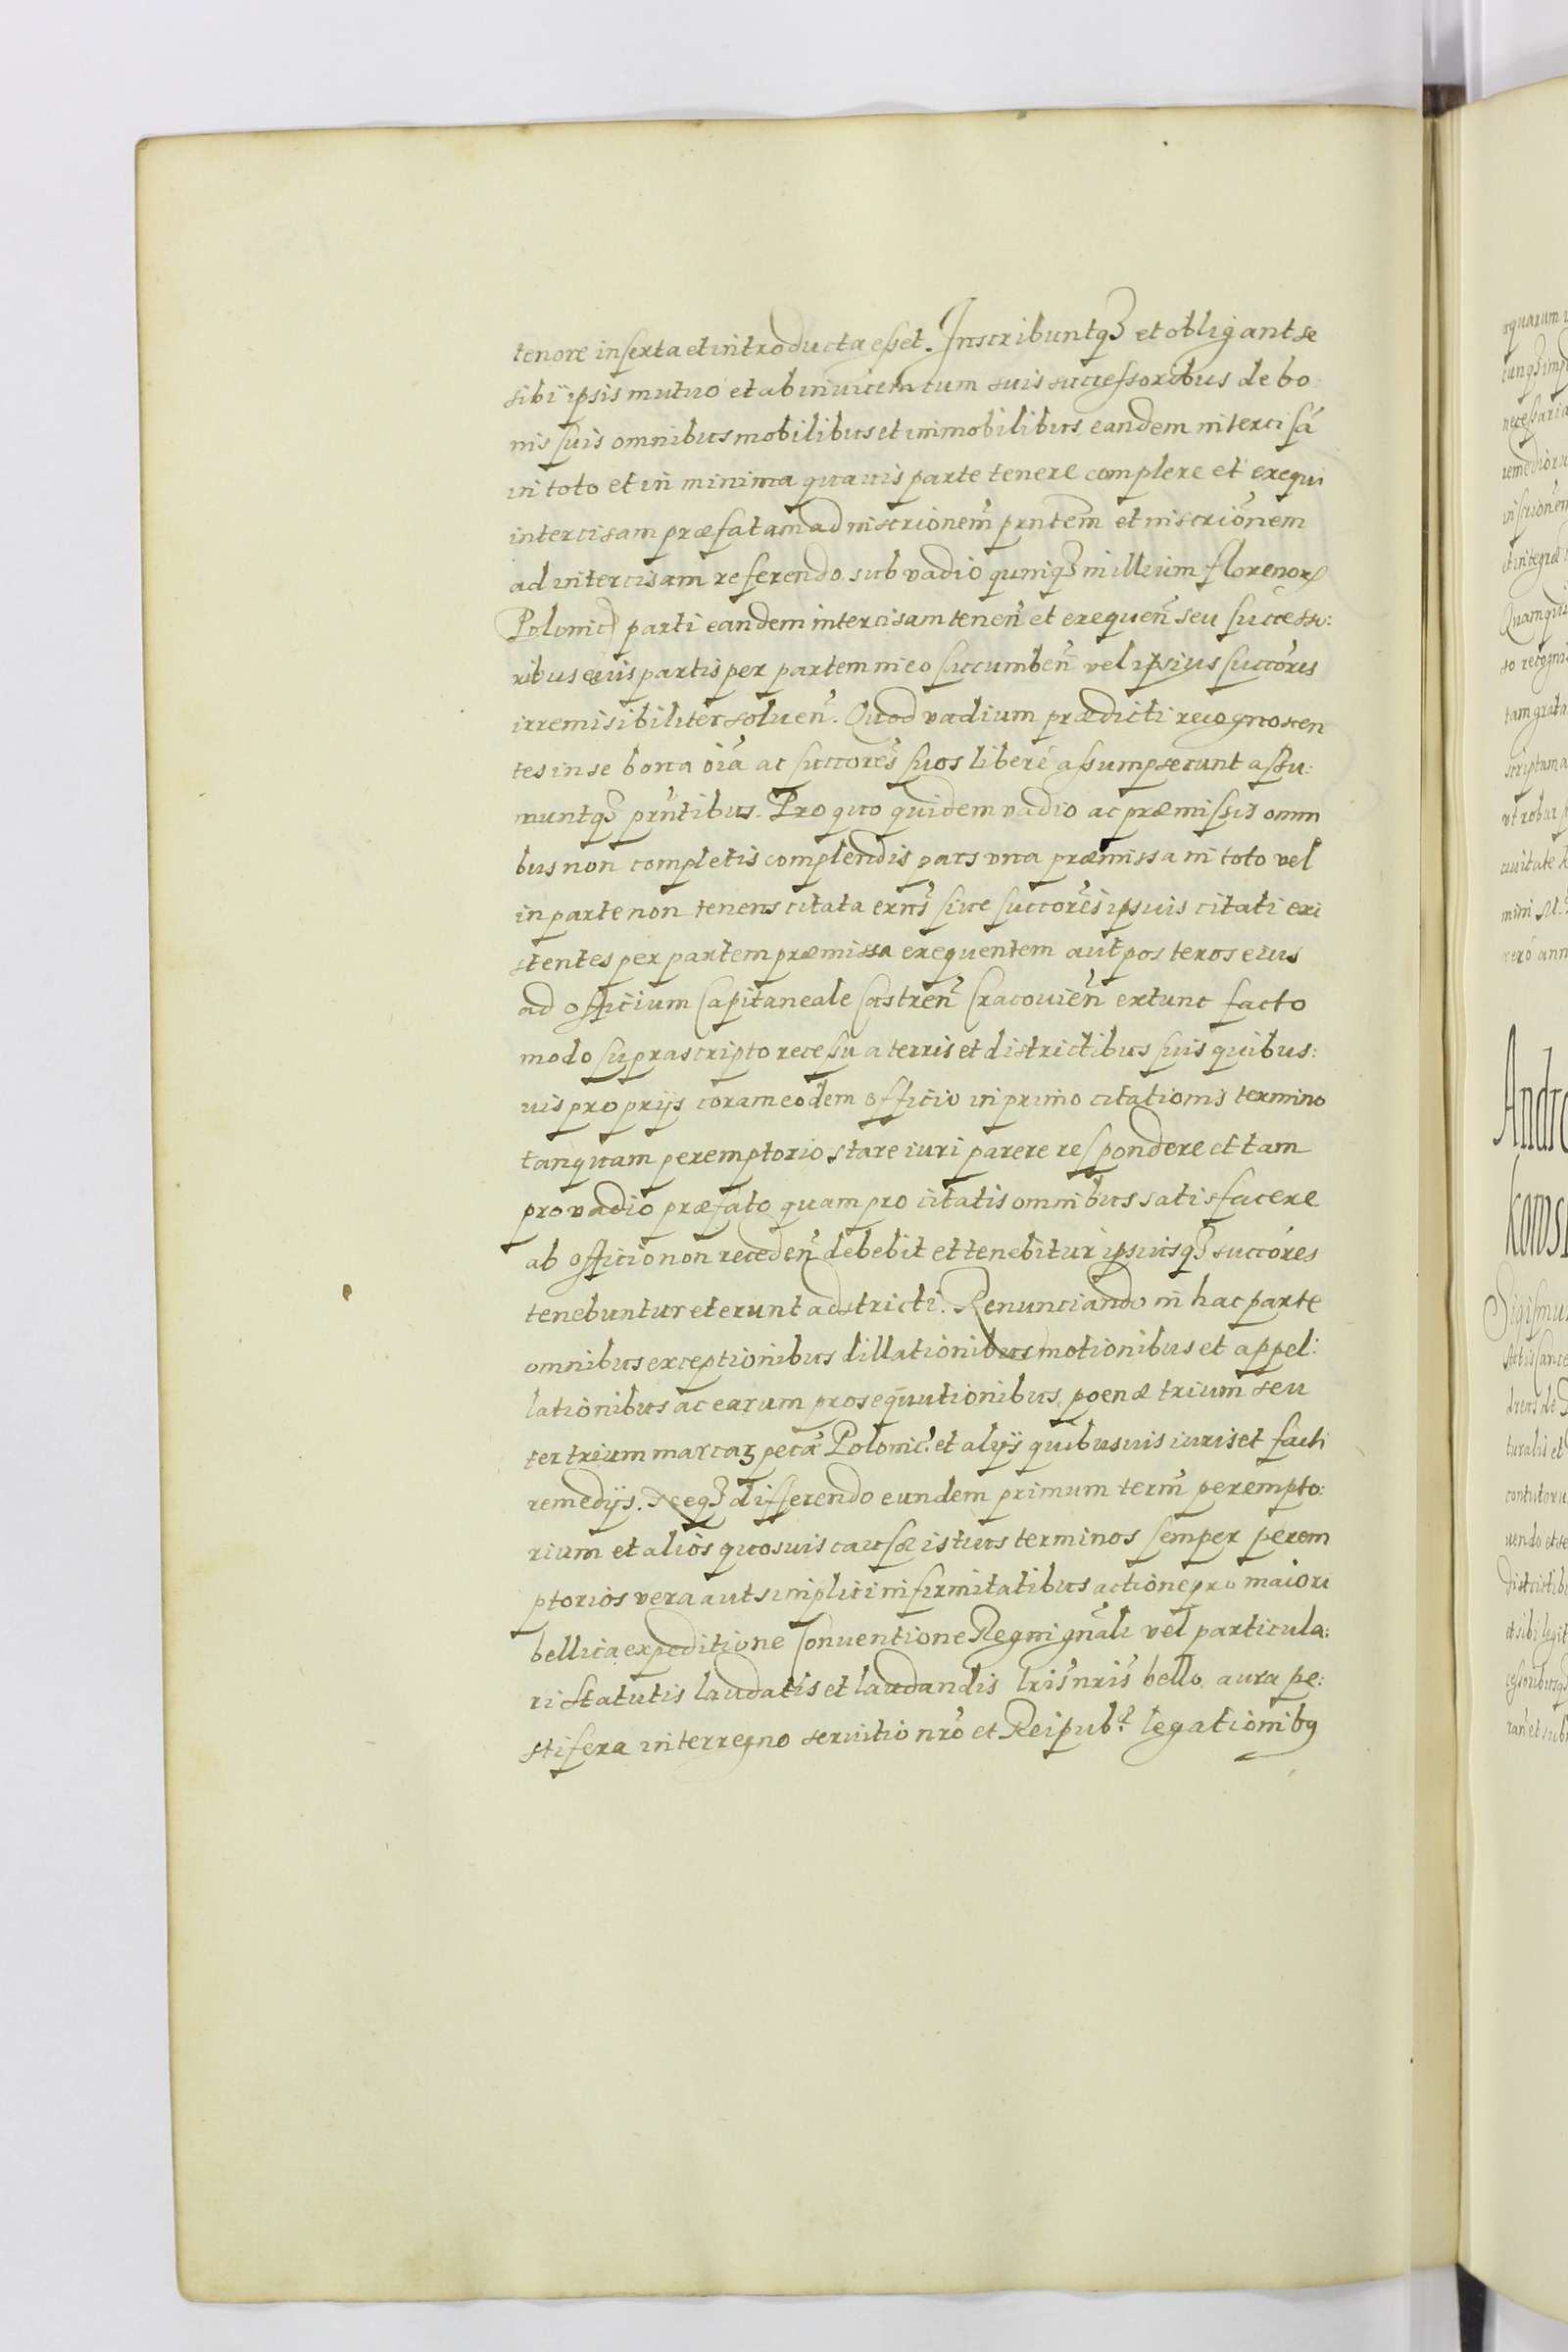 tenore inserta et introducta esset. Inscribuntq3 et obligant se
sibi ipsis mutuo et ab inuicem cum suis successoribus de bo
nis suis omnibus mobilibus et immobilibus eandem intercisā
in toto et in minima quauis parte tenere complere et exequi
intercisam præfatam ad inscrionem̃ prntem̃ et inscrionem̃
ad intercisam referendo sub vadio quinq3 millium florenor
Polonic parti eandem intercisam tenen̄ et exequen̄ seu successo:
ribus eius partis per partem in eo succumben̄ vel ipsius succores
irremisibiliter soluen̄. Quod vadium prædicti recognoscen
tes in se bona oīa ac succores suos liberè assumpserunt assu:
muntq3 prntibus. Pro quo quidem vadio ac præmissis omni
bus non completis complendis pars vna præmissa in toto vel
in parte non tenens citata exns̄ siue succores ipsius citati exi
stentes per partem præmissa exequentem aut posteros eius
ad officium Capitaneale Castren̄ Cracouien̄ extunc facto
modo suprascripto recessu a terris et districtibus suis quibus:
uis proprijs coram eodem officio in primo citationis termino
tanquam peremptorio stare iuri parere respondere et tam
pro vadio præfato quam pro citatis omnibus satisfacere
ab officio non receden̄ debebit et tenebitur ipsiusq3 succores
tenebuntur et erunt adstricti. Renunciando in hac parte
omnibus exceptionibus dillationibus motionibus et appel:
lationibus ac earum prosequutionibus, poenæ trium seu
ter trium marcar pecæ Polonic. et alijs quibusuis iuris et facti
remedijs. Neq3 differendo eundem primum term̄ perempto:
rium et alios quosuis causæ istius terminos semper perem
ptorios vera aut simplici infirmitatibus actione pro maiori
bellica expeditione Conuentione Regni gnāli vel particula:
ri statutis laudatis et laudandis lris nris bello, aura pe:
stifera interregno seruitio nro et Reipub. legationib9